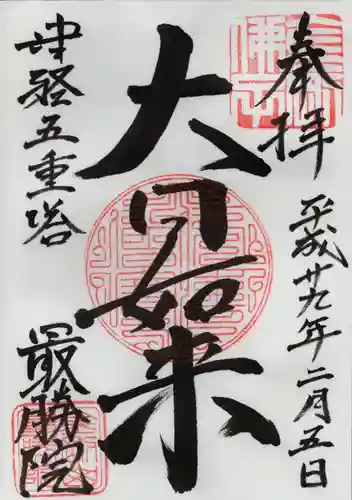 奉拝
平成廿九年二月五日
大日如来
津軽五重塔
最勝院